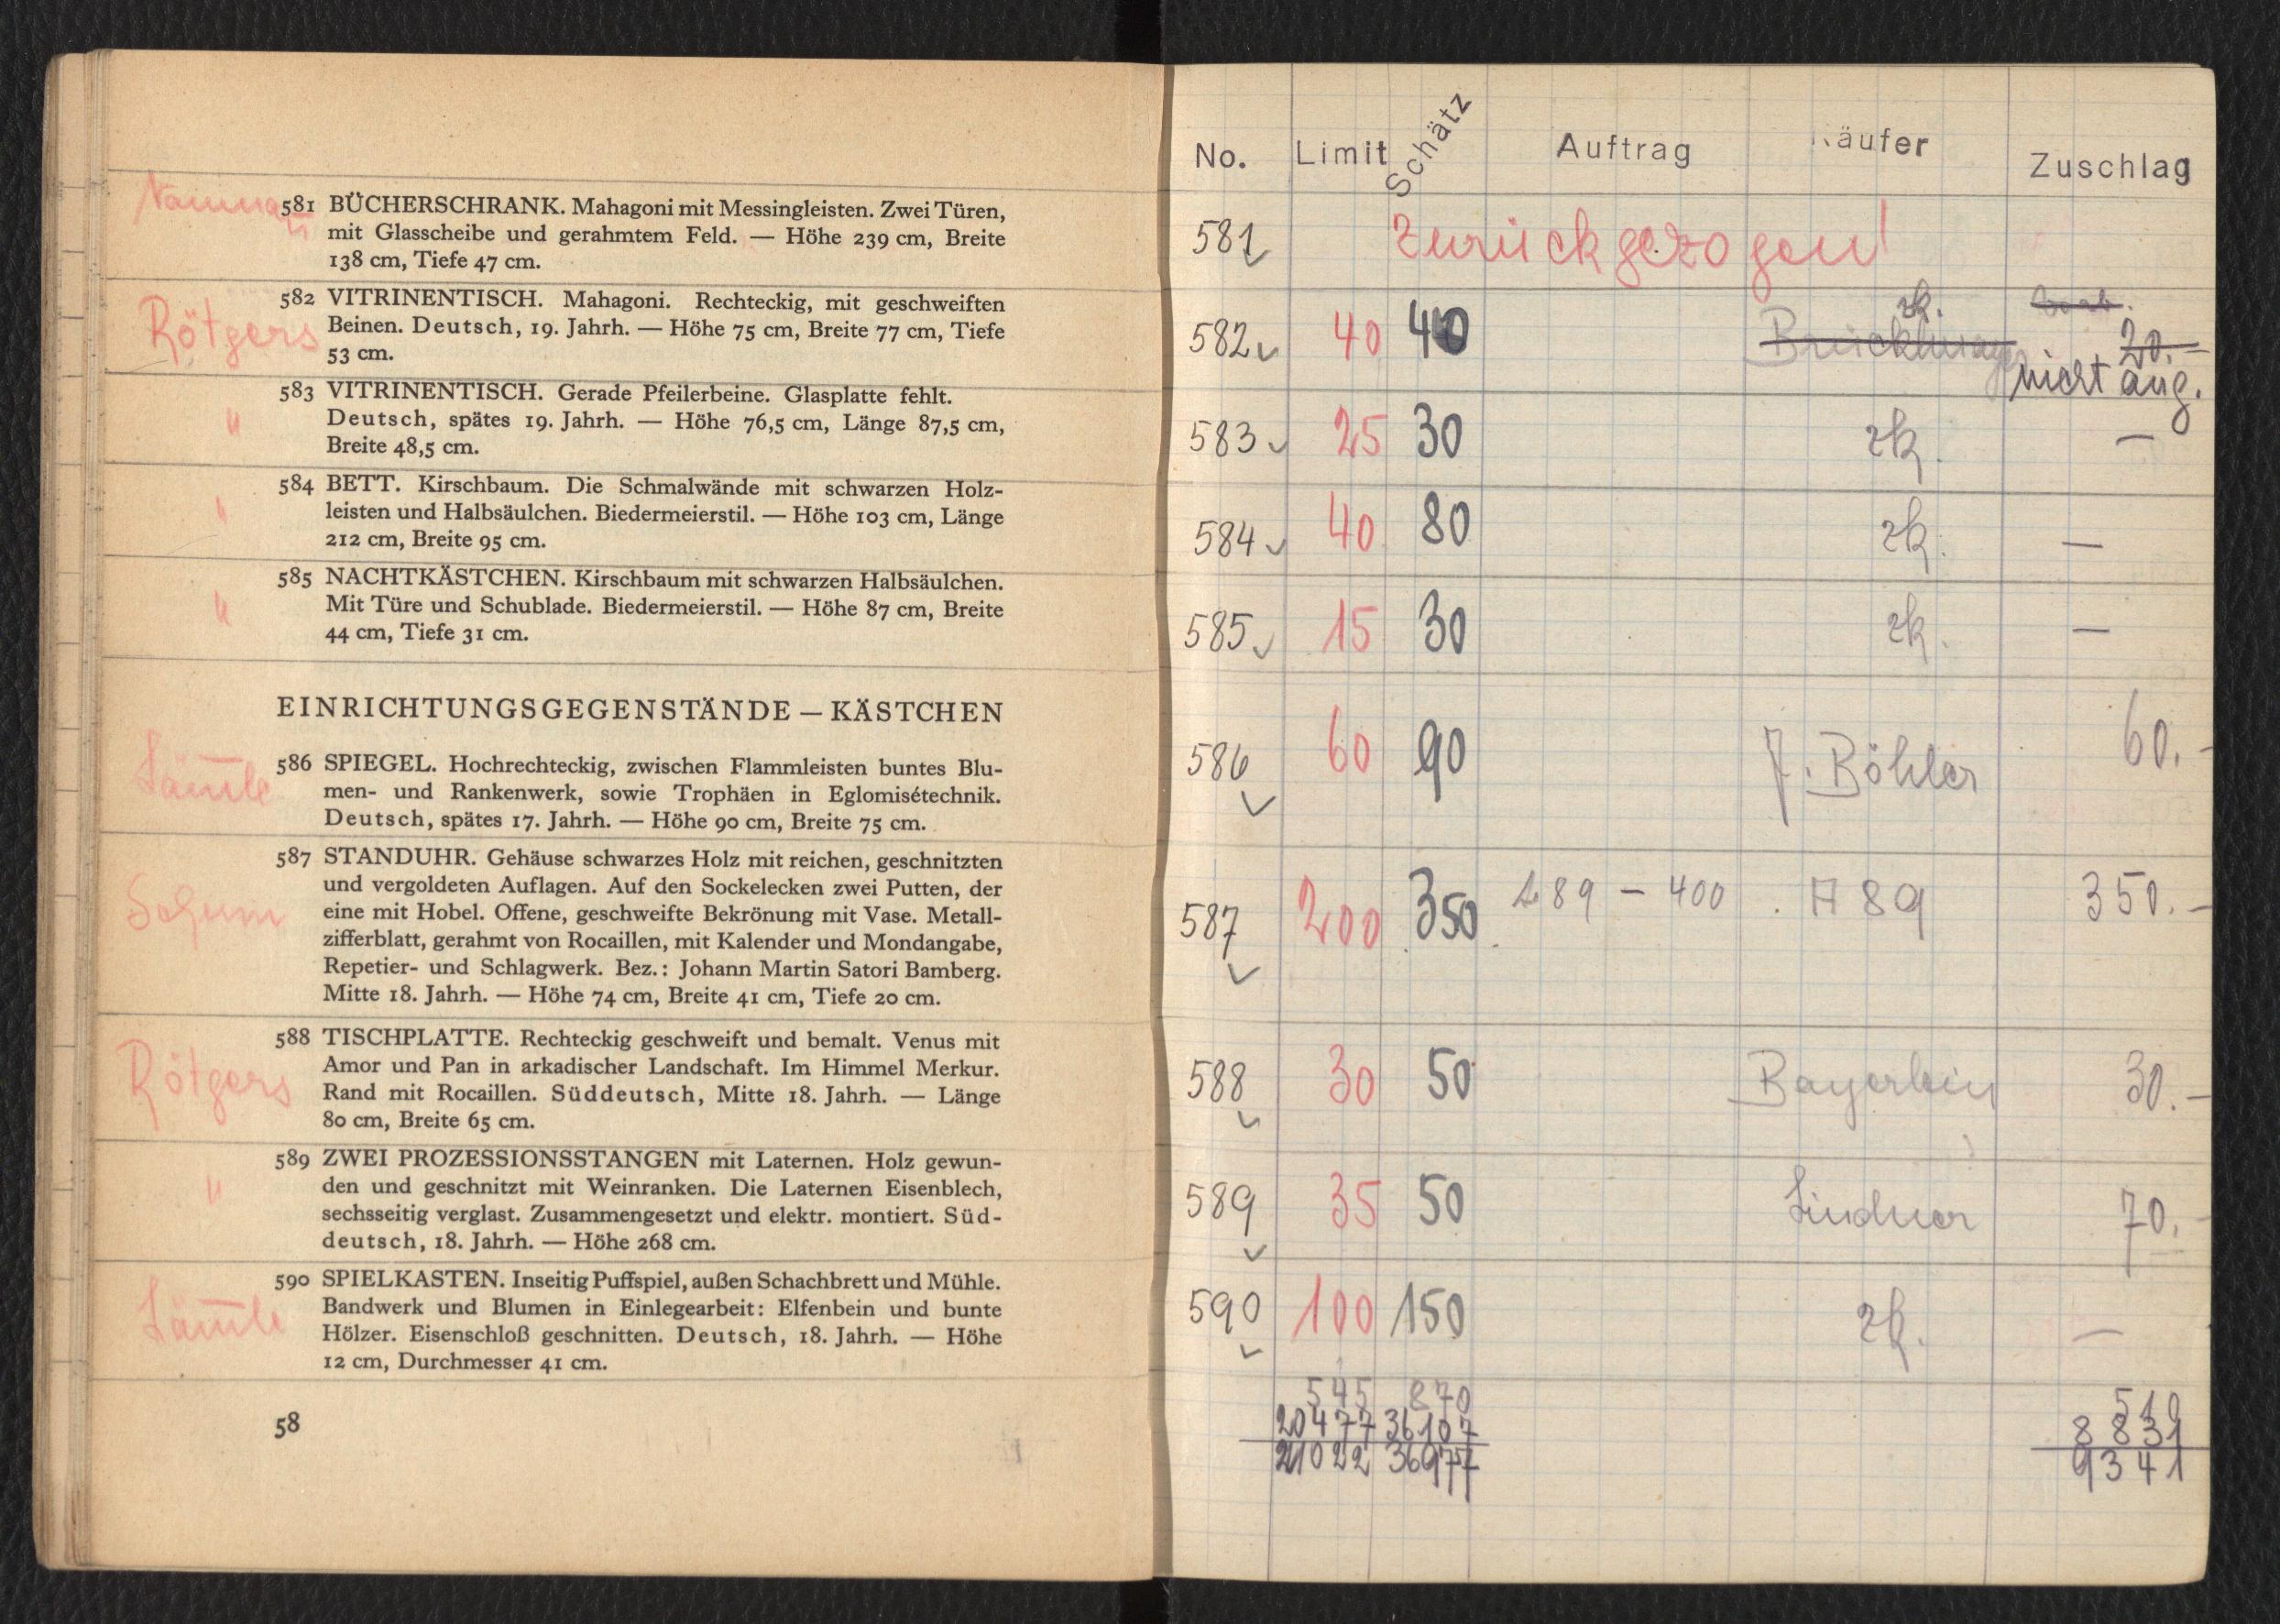 581 BÜCHERSCHRANK. Mahagoni mit Messingleisten. Zwei Türen,
mit Glasscheibe und gerahmtem Feld. — Höhe 239 cm, Breite
138 cm, Tiefe 47 cm.
Rötgers
582 VITRINENTISCH. Mahagoni. Rechteckig, mit geschweiften
Beinen. Deutsch, 19. Jahrh. — Höhe 75 cm, Breite 77 cm, Tiefe
53 cm.
"
583 VITRINENTISCH. Gerade Pfeilerbeine. Glasplatte fehlt.
Deutsch, spätes 19. Jahrh. — Höhe 76,5 cm, Länge 87,5 cm,
Breite 48,5 cm.
"
584 BETT. Kirschbaum. Die Schmalwände mit schwarzen Holz-
leisten und Halbsäulchen. Biedermeierstil. — Höhe 103 cm, Länge
212 cm, Breite 95 cm.
"
585 NACHTKÄSTCHEN. Kirschbaum mit schwarzen Halbsäulchen.
Mit Türe und Schublade. Biedermeierstil. — Höhe 87 cm, Breite
44 cm, Tiefe 31 cm.
EINRICHTUNGSGEGENSTÄNDE – KÄSTCHEN
586 SPIEGEL. Hochrechteckig, zwischen Flammleisten buntes Blu-
men- und Rankenwerk, sowie Trophäen in Eglomisétechnik.
Deutsch, spätes 17. Jahrh. — Höhe 90 cm, Breite 75 cm.
587 STANDUHR. Gehäuse schwarzes Holz mit reichen, geschnitzten
und vergoldeten Auflagen. Auf den Sockelecken zwei Putten, der
eine mit Hobel. Offene, geschweifte Bekrönung mit Vase. Metall-
zifferblatt, gerahmt von Rocaillen, mit Kalender und Mondangabe,
Repetier- und Schlagwerk. Bez.: Johann Martin Satori Bamberg.
Mitte 18. Jahrh. — Höhe 74 cm, Breite 41 cm, Tiefe 20 cm.
Rötgers
588 TISCHPLATTE. Rechteckig geschweift und bemalt. Venus mit
Amor und Pan in arkadischer Landschaft. Im Himmel Merkur.
Rand mit Rocaillen. Süddeutsch, Mitte 18. Jahrh. — Länge
80 cm, Breite 65 cm.
"
589 ZWEI PROZESSIONSSTANGEN mit Laternen. Holz gewun-
den und geschnitzt mit Weinranken. Die Laternen Eisenblech,
sechsseitig verglast. Zusammengesetzt und elektr. montiert. Süd-
deutsch, 18. Jahrh. — Höhe 268 cm.
590 SPIELKASTEN. Inseitig Puffspiel, außen Schachbrett und Mühle.
Bandwerk und Blumen in Einlegearbeit: Elfenbein und bunte
Hölzer. Eisenschloß geschnitten. Deutsch, 18. Jahrh. — Höhe
12 cm, Durchmesser 41 cm.
58
No. Limit Schätz Auftrag Käufer Zuschlag
581 Zurückgezogen!
582 40 40 zk. 20.–
nicht ang.
583 25 30 zk. —
584 40 80 zk. —
585 15 30 zk. —
586 60 90 J. Böhler 60.–
587 200 350 A 89 – 400 A 89 350.–
588 30 50 30.–
589 35 50 Lindner 70.–
590 100 150 zk. —
545 870 510
20477 36107 8831
21022 36977 9341